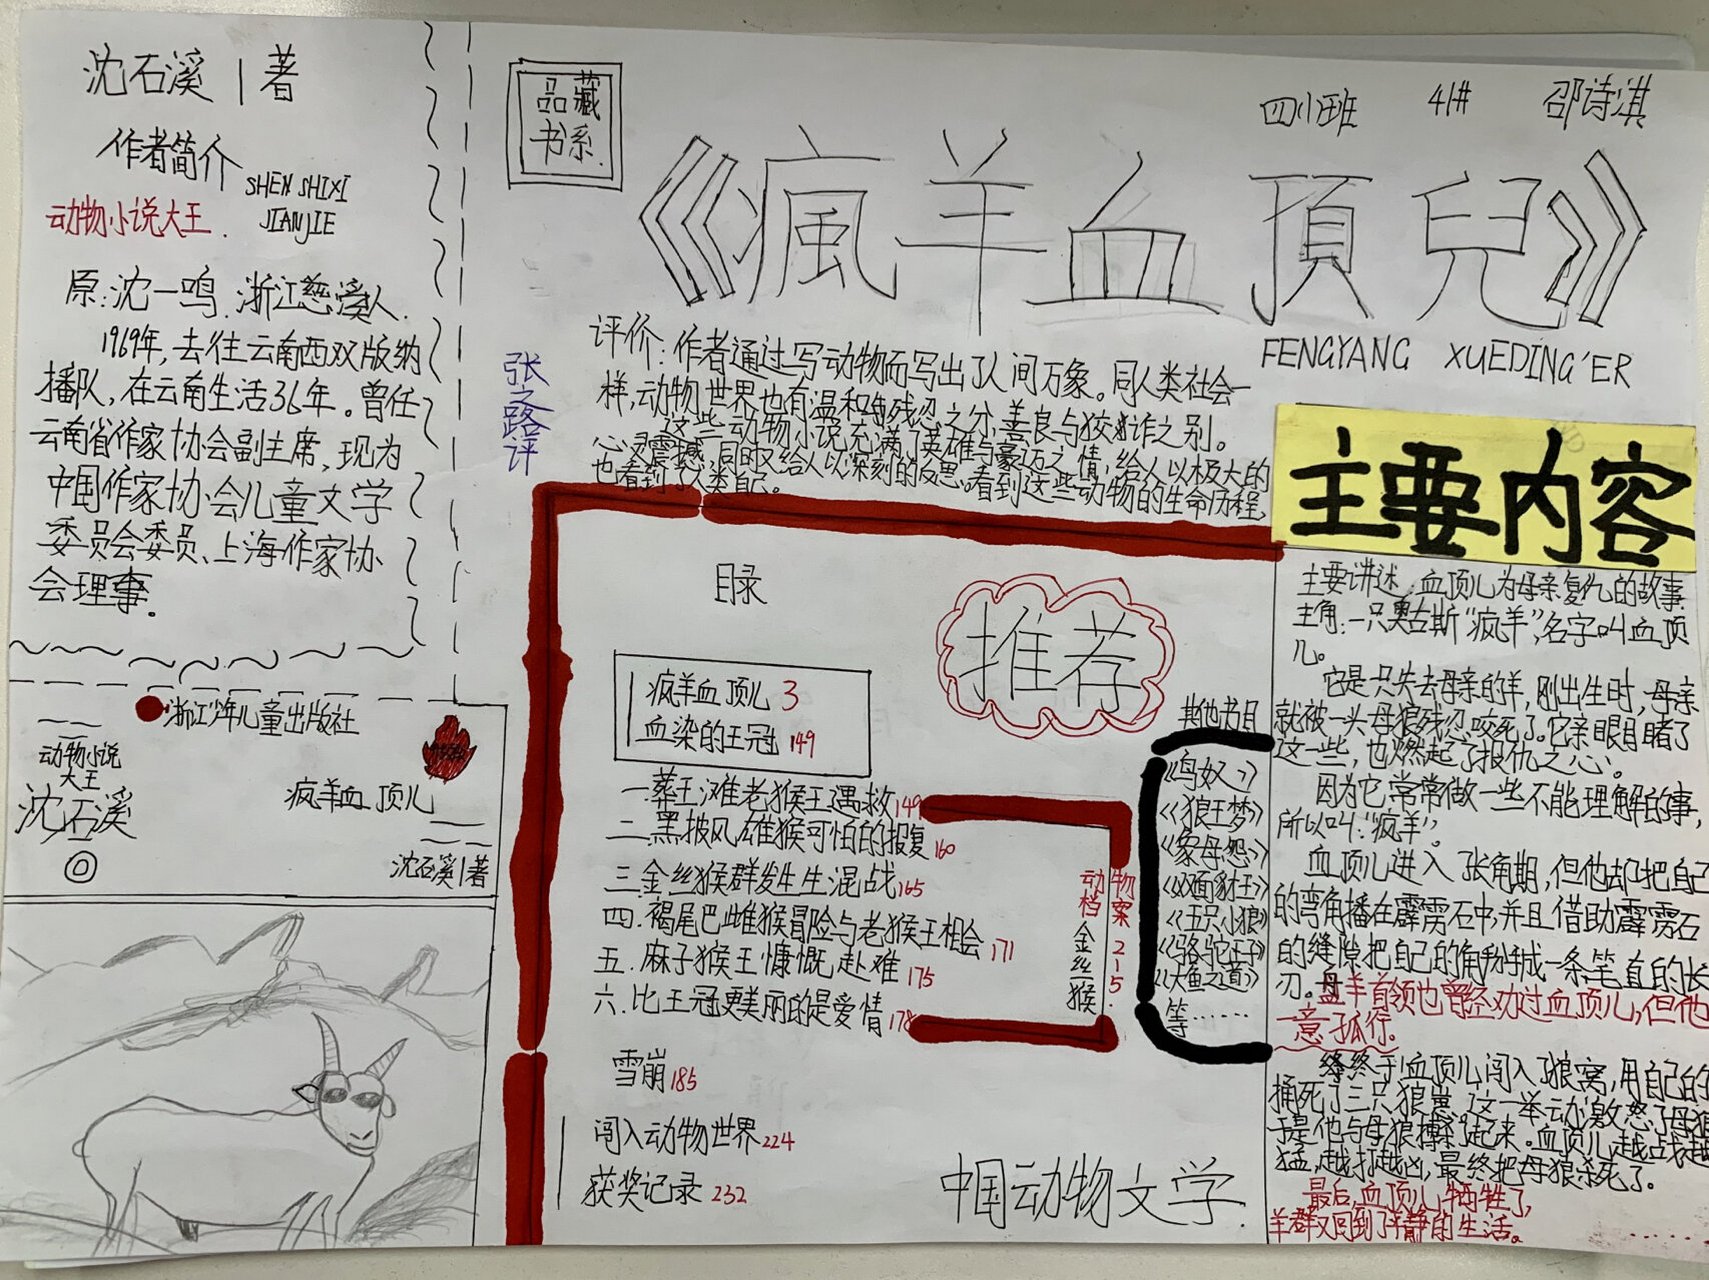 沈石溪|著
作者简介
SHEN SHIXI
JIANJIE
动物小说大王.
原:沈一鸣.浙江慈溪人.
1969年,去往云南西双版纳
播队,在云南生活36年。曾任
云南省作家协会副主席,现为
中国作家协会儿童文学
委员会委员、上海作家协
会理事。
浙江少年儿童出版社
动物小说
大王
沈石溪
疯羊血顶儿
沈石溪|著
品藏
书系.
41#
邵诗淇
《瘋羊血頂兒》
FENGYANG XUEDING'ER
张之路评
评价:作者通过写动物而写出了人间万象。同人类社会一
样,动物世界也有温和与残忍之分,善良与狡诈之别。
这些动物小说充满了英雄与豪迈之情,给人以极大的
心灵震撼,同时又给人以深刻的反思。看到这些动物的生命历程,
也看到了人类自己。
目录
推荐
疯羊血顶儿 3
血染的王冠 149
一.葬王滩老猴王遇救149
二.黑披风雄猴可怕的报复160
三.金丝猴群发生混战165
四.褐尾巴雌猴冒险与老猴王相会171
五.麻子猴王慷慨赴难175
六.比王冠更美丽的是爱情178
动物档案 金丝猴 215.
雪崩185
闯入动物世界224
获奖记录232
其他书目
《鸟奴》
《狼王梦》
《象母怨》
《双面豺王》
《五只小狼》
《骆驼王子》
《大鱼之道》
等……
中国动物文学.
主要内容
主要讲述:血顶儿为母亲复仇的故事
主角:一只奥古斯“疯羊”,名字叫血顶
儿。
它是只失去母亲的羊,刚出生时,母亲
就被一头母狼残忍咬死了。它亲眼目睹了
这一些,也燃起了报仇之心。
因为它常常做一些不能理解的事,
所以叫:“疯羊”。
血顶儿进入张角期,但他却把自己
的弯角播在霹雳石中,并且借助霹雳石
的缝隙把自己的角扮成一条笔直的长
刃。羊首领也曾经劝过血顶儿,但他
一意孤行。
终于血顶儿闯入了狼窝,用自己的
捅死了三只狼崽。这一举动激怒了母狼
于是他与母狼搏斗起来。血顶儿越战越
猛,越打越凶,最终把母狼杀死了。
最后,血顶儿牺牲了,
羊群又回到了平静的生活。
……